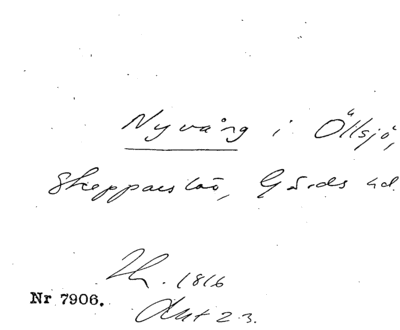 Nyvång i Öllsjö,
Skepparslöv, Gärds hd.
Th. 1816
Nr 7906.
Akt 23.